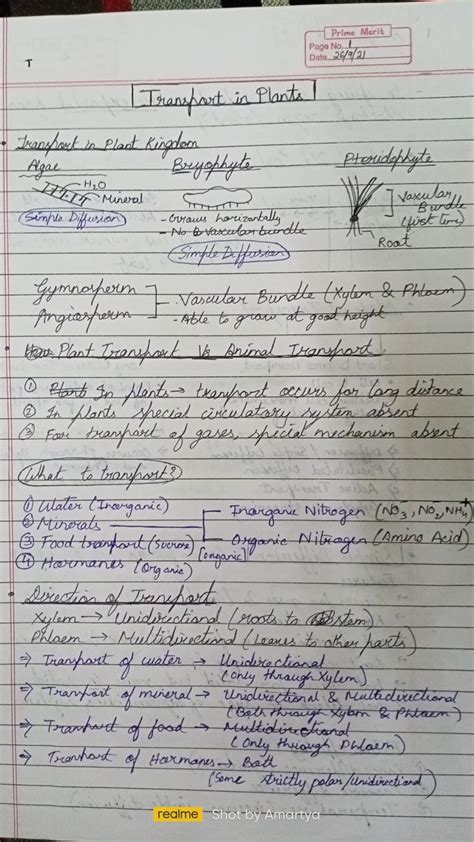 Prime Merit
Page No. 1
Date 26/9/21
T
Transport in Plants
• Transport in Plant Kingdom
Algae Bryophyte Pteridophyte
H2O
Mineral
Simple Diffusion
- Grows horizontally
- No Vascular bundle
Simple Diffusion
Vascular Bundle (first time)
Root
Gymnosperm - Vascular Bundle (Xylem & Phloem)
Angiosperm - Able to grow at good height
Plant Transport Vs Animal Transport
① In plants → transport occurs for long distance
② In plants special circulatory system absent
③ For transport of gases, special mechanism absent
What to transport?
① Water (Inorganic)
② Minerals Inorganic Nitrogen (NO3-, NO2-, NH4+)
③ Food transport (sucrose) [organic] Organic Nitrogen (Amino Acid)
④ Hormones (Organic)
• Direction of Transport
Xylem → Unidirectional (roots to stem)
Phloem → Multidirectional (leaves to other parts)
⇒ Transport of water → Unidirectional
(Only through Xylem)
⇒ Transport of mineral → Unidirectional & Multidirectional
(Both through Xylem & Phloem)
⇒ Transport of food → Multidirectional
(Only through Phloem)
⇒ Transport of Hormones → Both
(Some strictly polar/Unidirectional)
realme Shot by Amartya